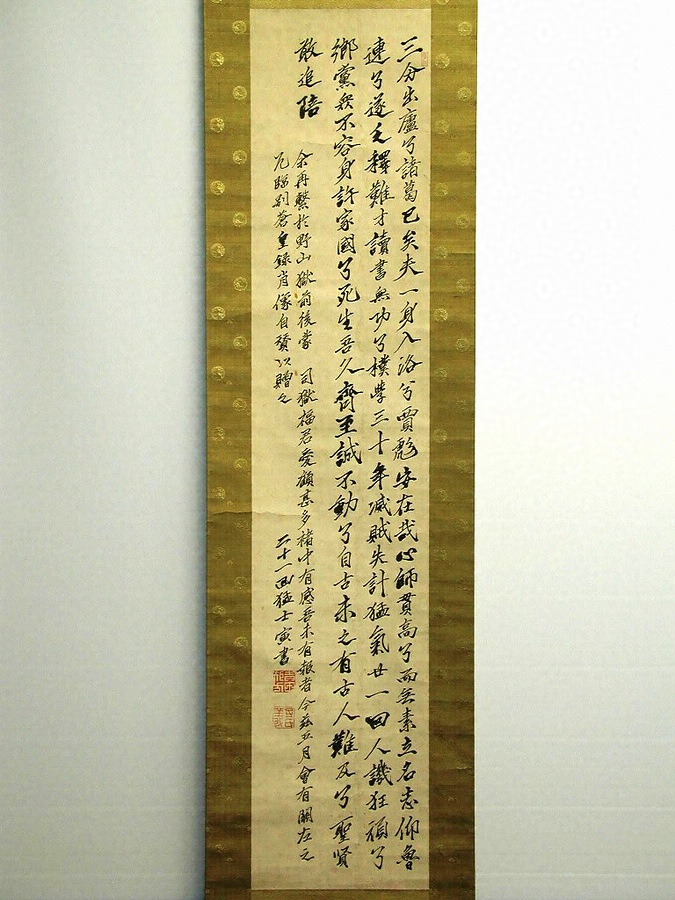 三分出廬兮諸葛已矣夫一身入洛兮賈彪安在哉心師貫高兮而無素立名志仰魯
連兮遂乏釋難才讀書無功兮樸學三十年滅賊失計猛氣廿一回人譏狂頑兮
鄉黨衆不容身許家國兮死生吾久齊至誠不動兮自古未之有古人難及兮聖賢
敢追陪
余再繫於野山獄前後蒙 司獄福君愛顧甚多褚中有感吾未有報者今茲五月會有關左之
厄臨別蒼皇錄肖像自贊以贈之
二十一回猛士寅書